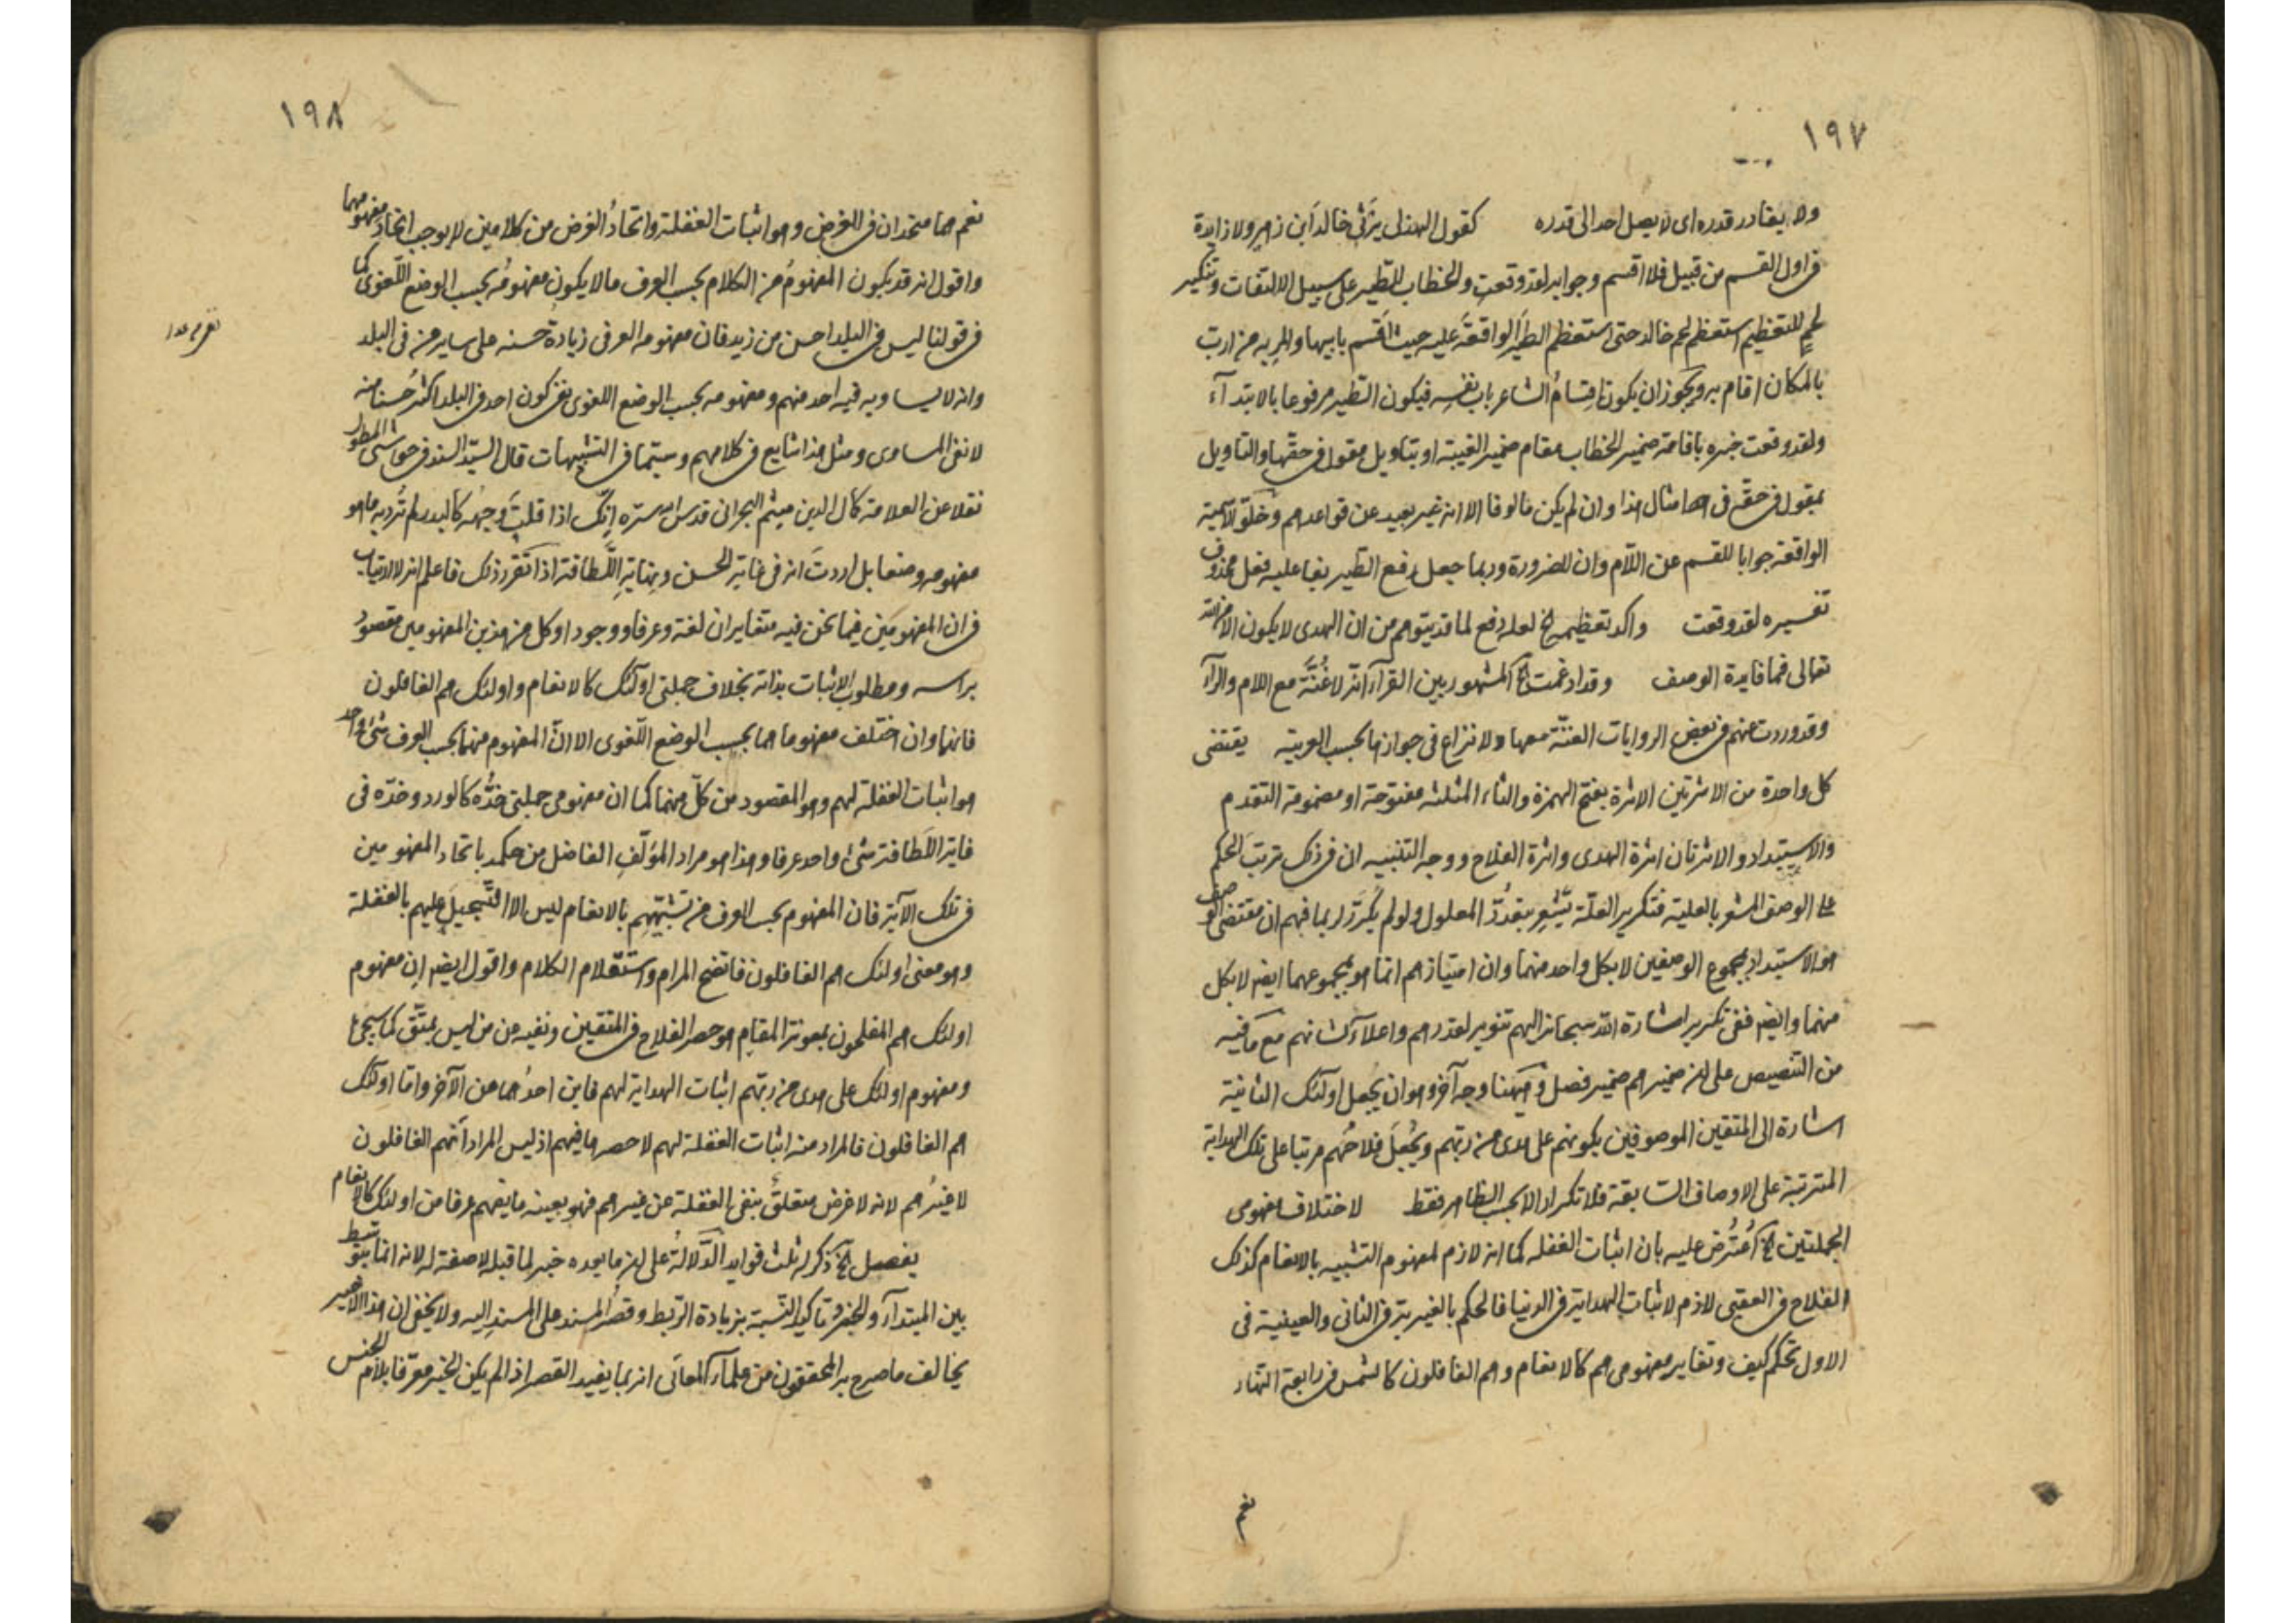 ١٩٧
ولا يغادر قدره اى لا يصل احد الى قدره كقول الهذلى يرثى خالد ابن زهير ولا زايدة
فى اول القسم من قبيل فلا اقسم وجوابه لقد وقعت والخطاب للطير على سبيل الالتفات وتنكير
لحم للتعظيم استعظم لحم خالد حتى استعظم الطير الواقعة عليه حيث اقسم بابيها والمربه من ارب
بالمكان اقام به ويجوز ان يكون اقسام الشاعر باب نفسه فيكون الطير مرفوعا بالابتدآء
ولقد وقعت خبره باقامة ضمير الخطاب مقام ضمير الغيبة او بتاويل مقول فى حقها والتاويل
بمقول فى حقه فى امثال هذا وان لم يكن مالوفا الا انه غير بعيد عن قواعدهم وخلو الآمية
الواقعة جوابا للقسم عن اللام وان للضرورة وربما جعل رفع الطير بفاعليه فعل محذوف
تفسيره لقد وقعت واكد تعظيمه الخ لعله دفع لما قد يتوهم من ان الهدى لا يكون الا من الله
تعالى فما فايدة الوصف وقد ادغمت الخ المشهور بين القرآء انه لا غنة مع اللام والرآء
وقد وردت عنهم فى بعض الروايات الغنة معها ولا نزاع فى جوازها بحسب العربية يقتضى
كل واحدة من الاثرتين الاثرة بفتح الهمزة والثاء المثلثه مفتوحة او مضمومة التقدم
والاستبداد والاثرتان اثرة الهدى واثرة الفلاح ووجه التنبيه ان فى ذلك ترتب الحكم
على الوصف المشعر بالعلية فتكرير العلة يشعر بتعدد المعلول ولو لم يكرر لربما فهم ان مقتضى الوصف
هو الاستبداد بمجموع الوصفين لا بكل واحد منهما وان امتيازهم انما هو بمجموعهما ايضا لا بكل
منهما وايضا ففى تكرير اشارة الله سبحانه اليهم تنويه لقدرهم واعلآء لشانهم مع ما فيه
من التنصيص على ان ضمير هم ضمير فصل وهيهنا وجه آخر وهو ان يجعل اولئك الثانية
اشارة الى المتقين الموصوفين بكونهم على هدى من ربهم ويجعل فلاحهم مرتبا على تلك الهداية
المترتبة على الاوصاف السابقة فلا تكرار الا بحسب الظاهر فقط لاختلاف مفهومى
الجملتين الخ اعترض عليه بان اثبات الغفله كما انه لازم لمفهوم التشبيه بالانعام كذلك
الفلاح فى العقبى لازم لاثبات الهداية فى الدنيا فالحكم بالغيرية فى الثانى والعينية فى
الاول تحكم كيف وتغاير مفهومى هم كالانعام وهم الغافلون كالشمس فى رابعة النهار
نعم
١٩٨
نعم هما متحدان فى الغرض وهو اثبات الغفلة واتحاد الغرض من كلامين لا يوجب اتحاد مفهومهما
واقول انه قد يكون المفهوم من الكلام بحسب العرف ما لا يكون مفهومه بحسب الوضع اللغوى كما
فى قولنا ليس فى البلد احسن من زيد فان مفهومه العرفى زيادة حسنه على ساير من فى البلد
وانه لا يساويه فيه احد منهم ومفهومه بحسب الوضع اللغوى نفى كون احد فى البلد اكثر حسنا منه
لا نفى المساوى ومثل هذا شايع فى كلامهم وسيما فى التشبيهات قال السيد السند فى حواشى المطول
نقلا عن العلامة كمال الدين ميثم البحرانى قدس الله سره انك اذا قلت وجهه كالبدر لم ترد به ما هو
مفهومه وضعا بل اردت انه فى غاية الحسن ونهاية اللطافة اذا تقرر ذلك فاعلم انه لا ارتياب
فى ان المفهومين فيما نحن فيه متغايران لغة وعرفا ووجودا وكل من هذين المفهومين مقصود
براسه ومطلوب الاثبات بذاته بخلاف جملتى اولئك كالانعام واولئك هم الغافلون
فانهما وان اختلف مفهوماهما بحسب الوضع اللغوى الا ان المفهوم منهما بحسب العرف شئ واحد
هو اثبات الغفلة لهم وهو المقصود من كل منهما كما ان مفهومى جملتى خده كالورد وخده فى
غاية اللطافة شئ واحد عرفا وهذا هو مراد المؤلف الفاضل من حكمه باتحاد المفهومين
فى تلك الآية فان المفهوم بحسب العرف من تشبيههم بالانعام ليس الا التسجيل عليهم بالغفلة
وهو معنى اولئك هم الغافلون فاتضح المرام واستقام الكلام واقول ايضا ان مفهوم
اولئك هم المفلحون بمعونة المقام هو حصر الفلاح فى المتقين ونفيه عن من ليس بمتق كما سيجئ
ومفهوم اولئك على هدى من ربهم اثبات الهداية لهم فاين احدهما من الآخر واما اولئك
هم الغافلون فالمراد منه اثبات الغفلة لهم لا حصرها فيهم اذ ليس المراد انهم الغافلون
لا غيرهم لانه لا غرض متعلق بنفى الغفلة عن غيرهم فهو بعينه ما يفهم عرفا من اولئك كالانعام
يفصل الخ ذكر له ثلث فوايد الدلالة على ان ما بعده خبر لما قبله لا صفة له لانه انما يتوسط
بين المبتدآء والخبر وتاكيد النسبة بزيادة الربط وقصر المسند على المسند اليه ولا يخفى ان هذا الاخير
يخالف ما صرح به المحققون من علمآء المعانى انه بما يفيد القصر اذا لم يكن الخبر معرفا بلام الجنس